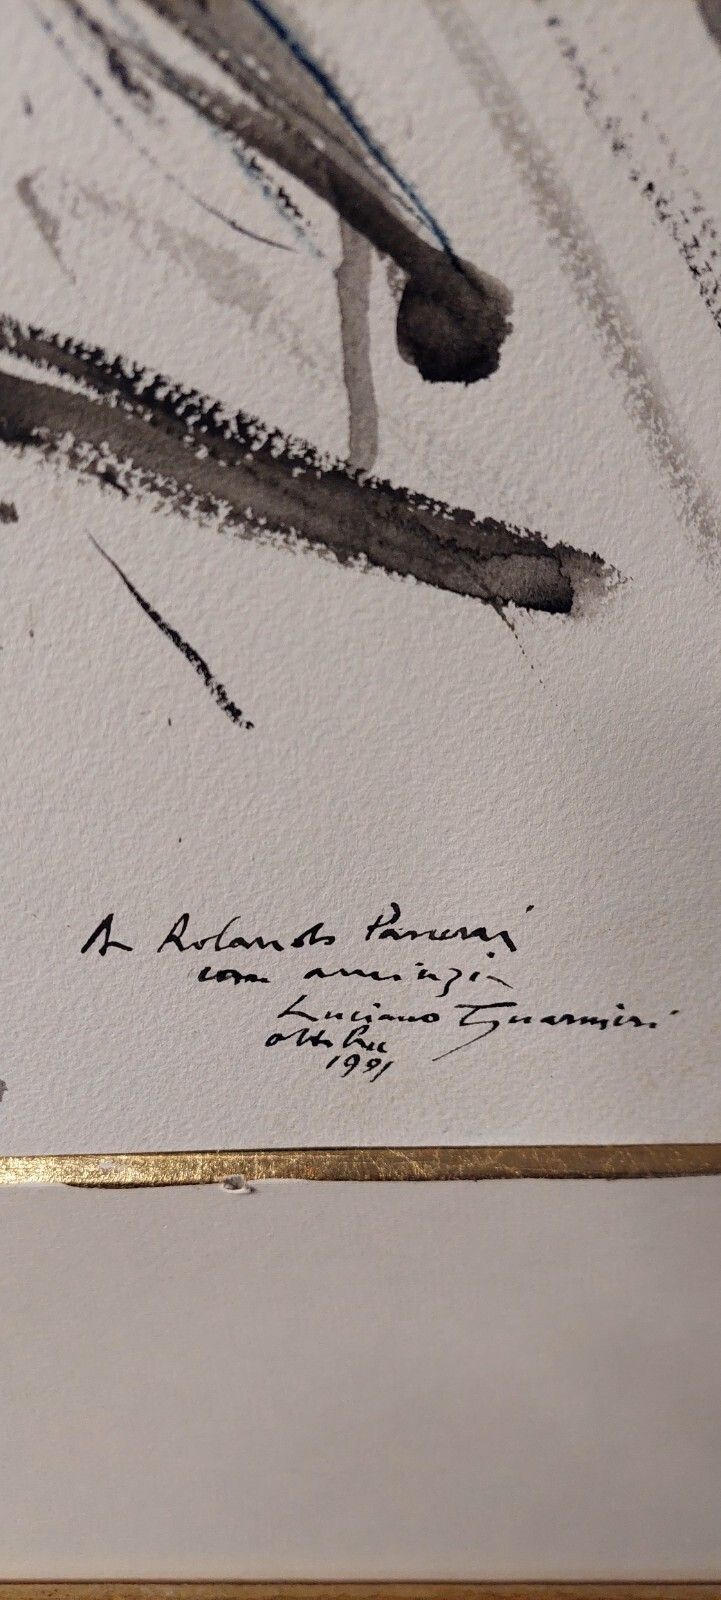 A Rolando Panerai
con amicizia
Luciano Guarnieri
ottobre
1991